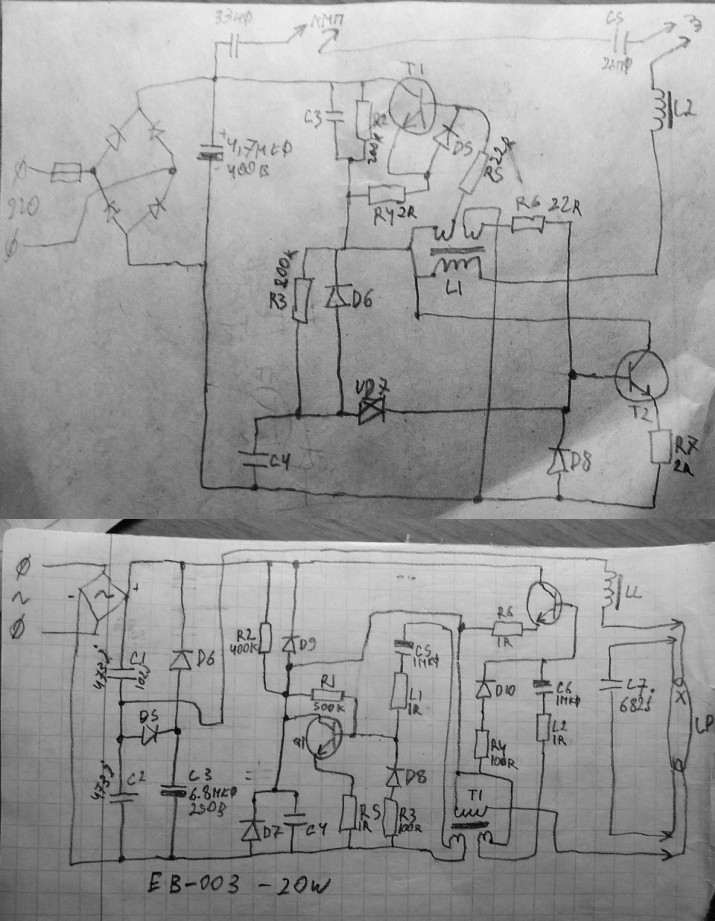 33нФ
ЛМП
C5
22пФ
T1
L2
C3
R2
200K
D5
R5
22R
+
4,7мкФ
400В
-
220
R4 2R
R6 22R
R3
200K
D6
L1
VD7
T2
C4
D8
R7
2R
~
-
~
+
L1
C1
D6
R2
400K
D9
C5
1МКФ
R6
1R
R1
500K
L1
1R
D10
C6
1МКФ
C7
682J
LP
D5
Q1
R4
100R
L2
1R
C2
C3
6.8МКФ
250В
D8
T1
D7
C4
R5
1R
R3
100R
EB-003 -20W